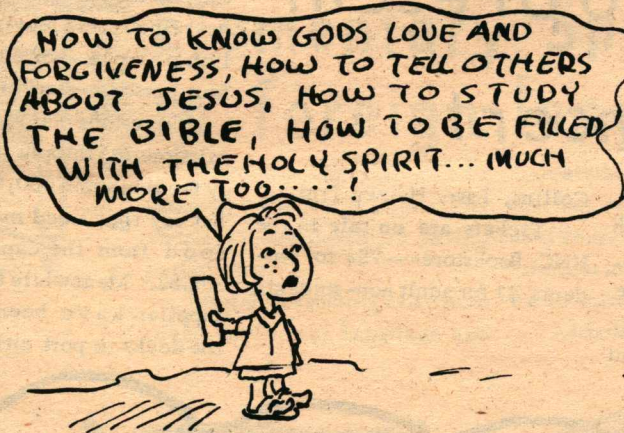 HOW TO KNOW GODS LOVE AND
FORGIVENESS, HOW TO TELL OTHERS
ABOUT JESUS, HOW TO STUDY
THE BIBLE, HOW TO BE FILLED
WITH THE HOLY SPIRIT... MUCH
MORE TOO....!